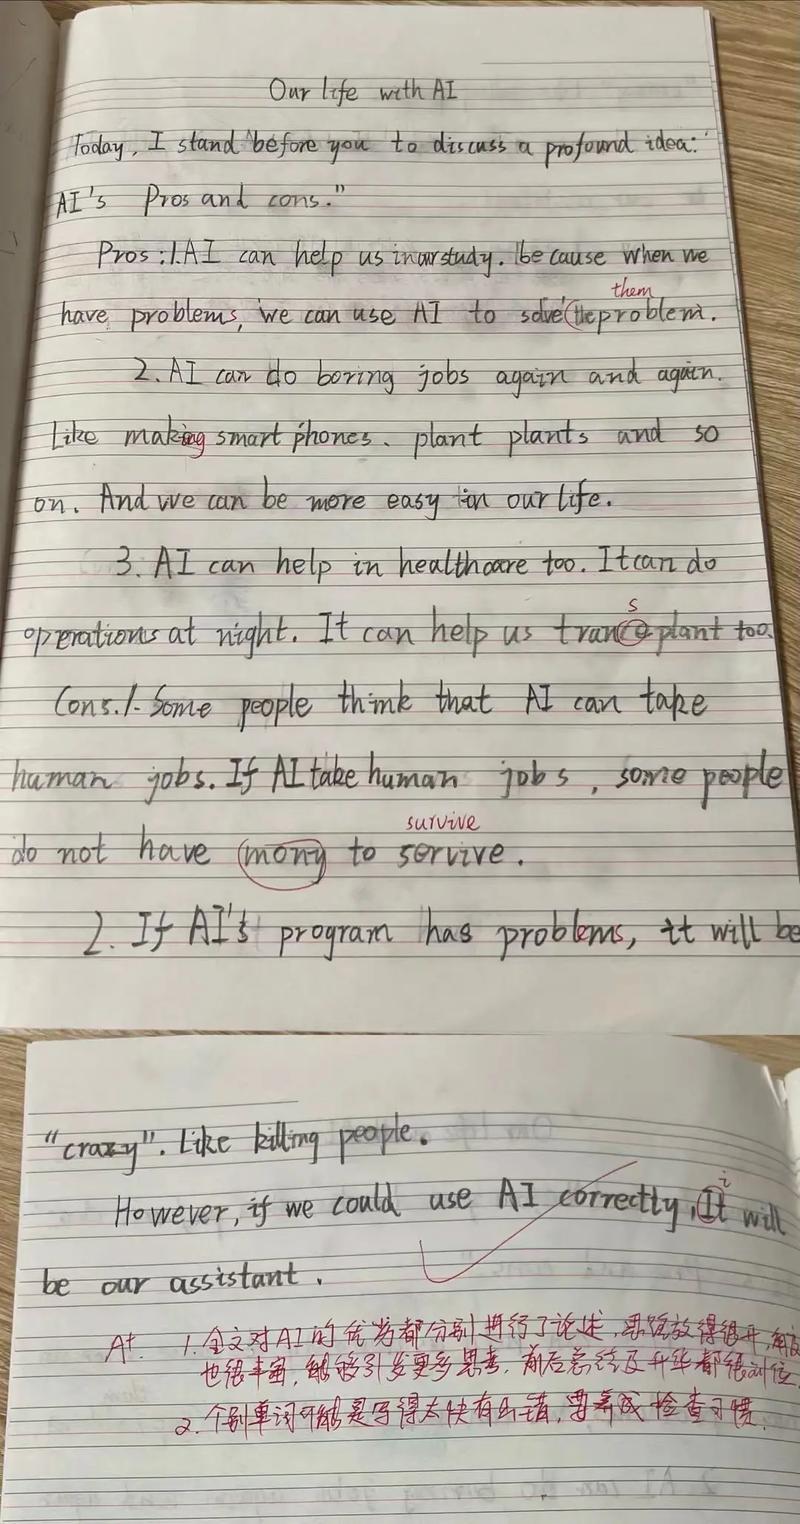 Our life with AI
Today, I stand "before you to discuss a profound idea: "
AI's Pros and cons."
Pros: 1. AI can help us in our study. because when we
them
have problems, we can use AI to solve (the problem.
2. AI can do boring jobs again and again.
Like making smart phones、plant plants and so
on. And we can be more easy in our life.
3. AI can help in healthcare too. It can do
s
operations at night. It can help us trance plant too.
Cons. 1. Some people think that AI can take
human jobs. If AI take human jobs, some people
survive
do not have mony to servive.
2. If AI's program has problems, it will be
"crazy". Like killing people.
i
However, if we could use AI correctly, It will
be our assistant.
A+. 1. 全文对AI的优劣都分别进行了论述,思路放得很开,角度
也很丰富,能够引发更多思考,前后总结及升华都很到位。
2. 个别单词可能是写得太快有出错,要养成检查习惯。